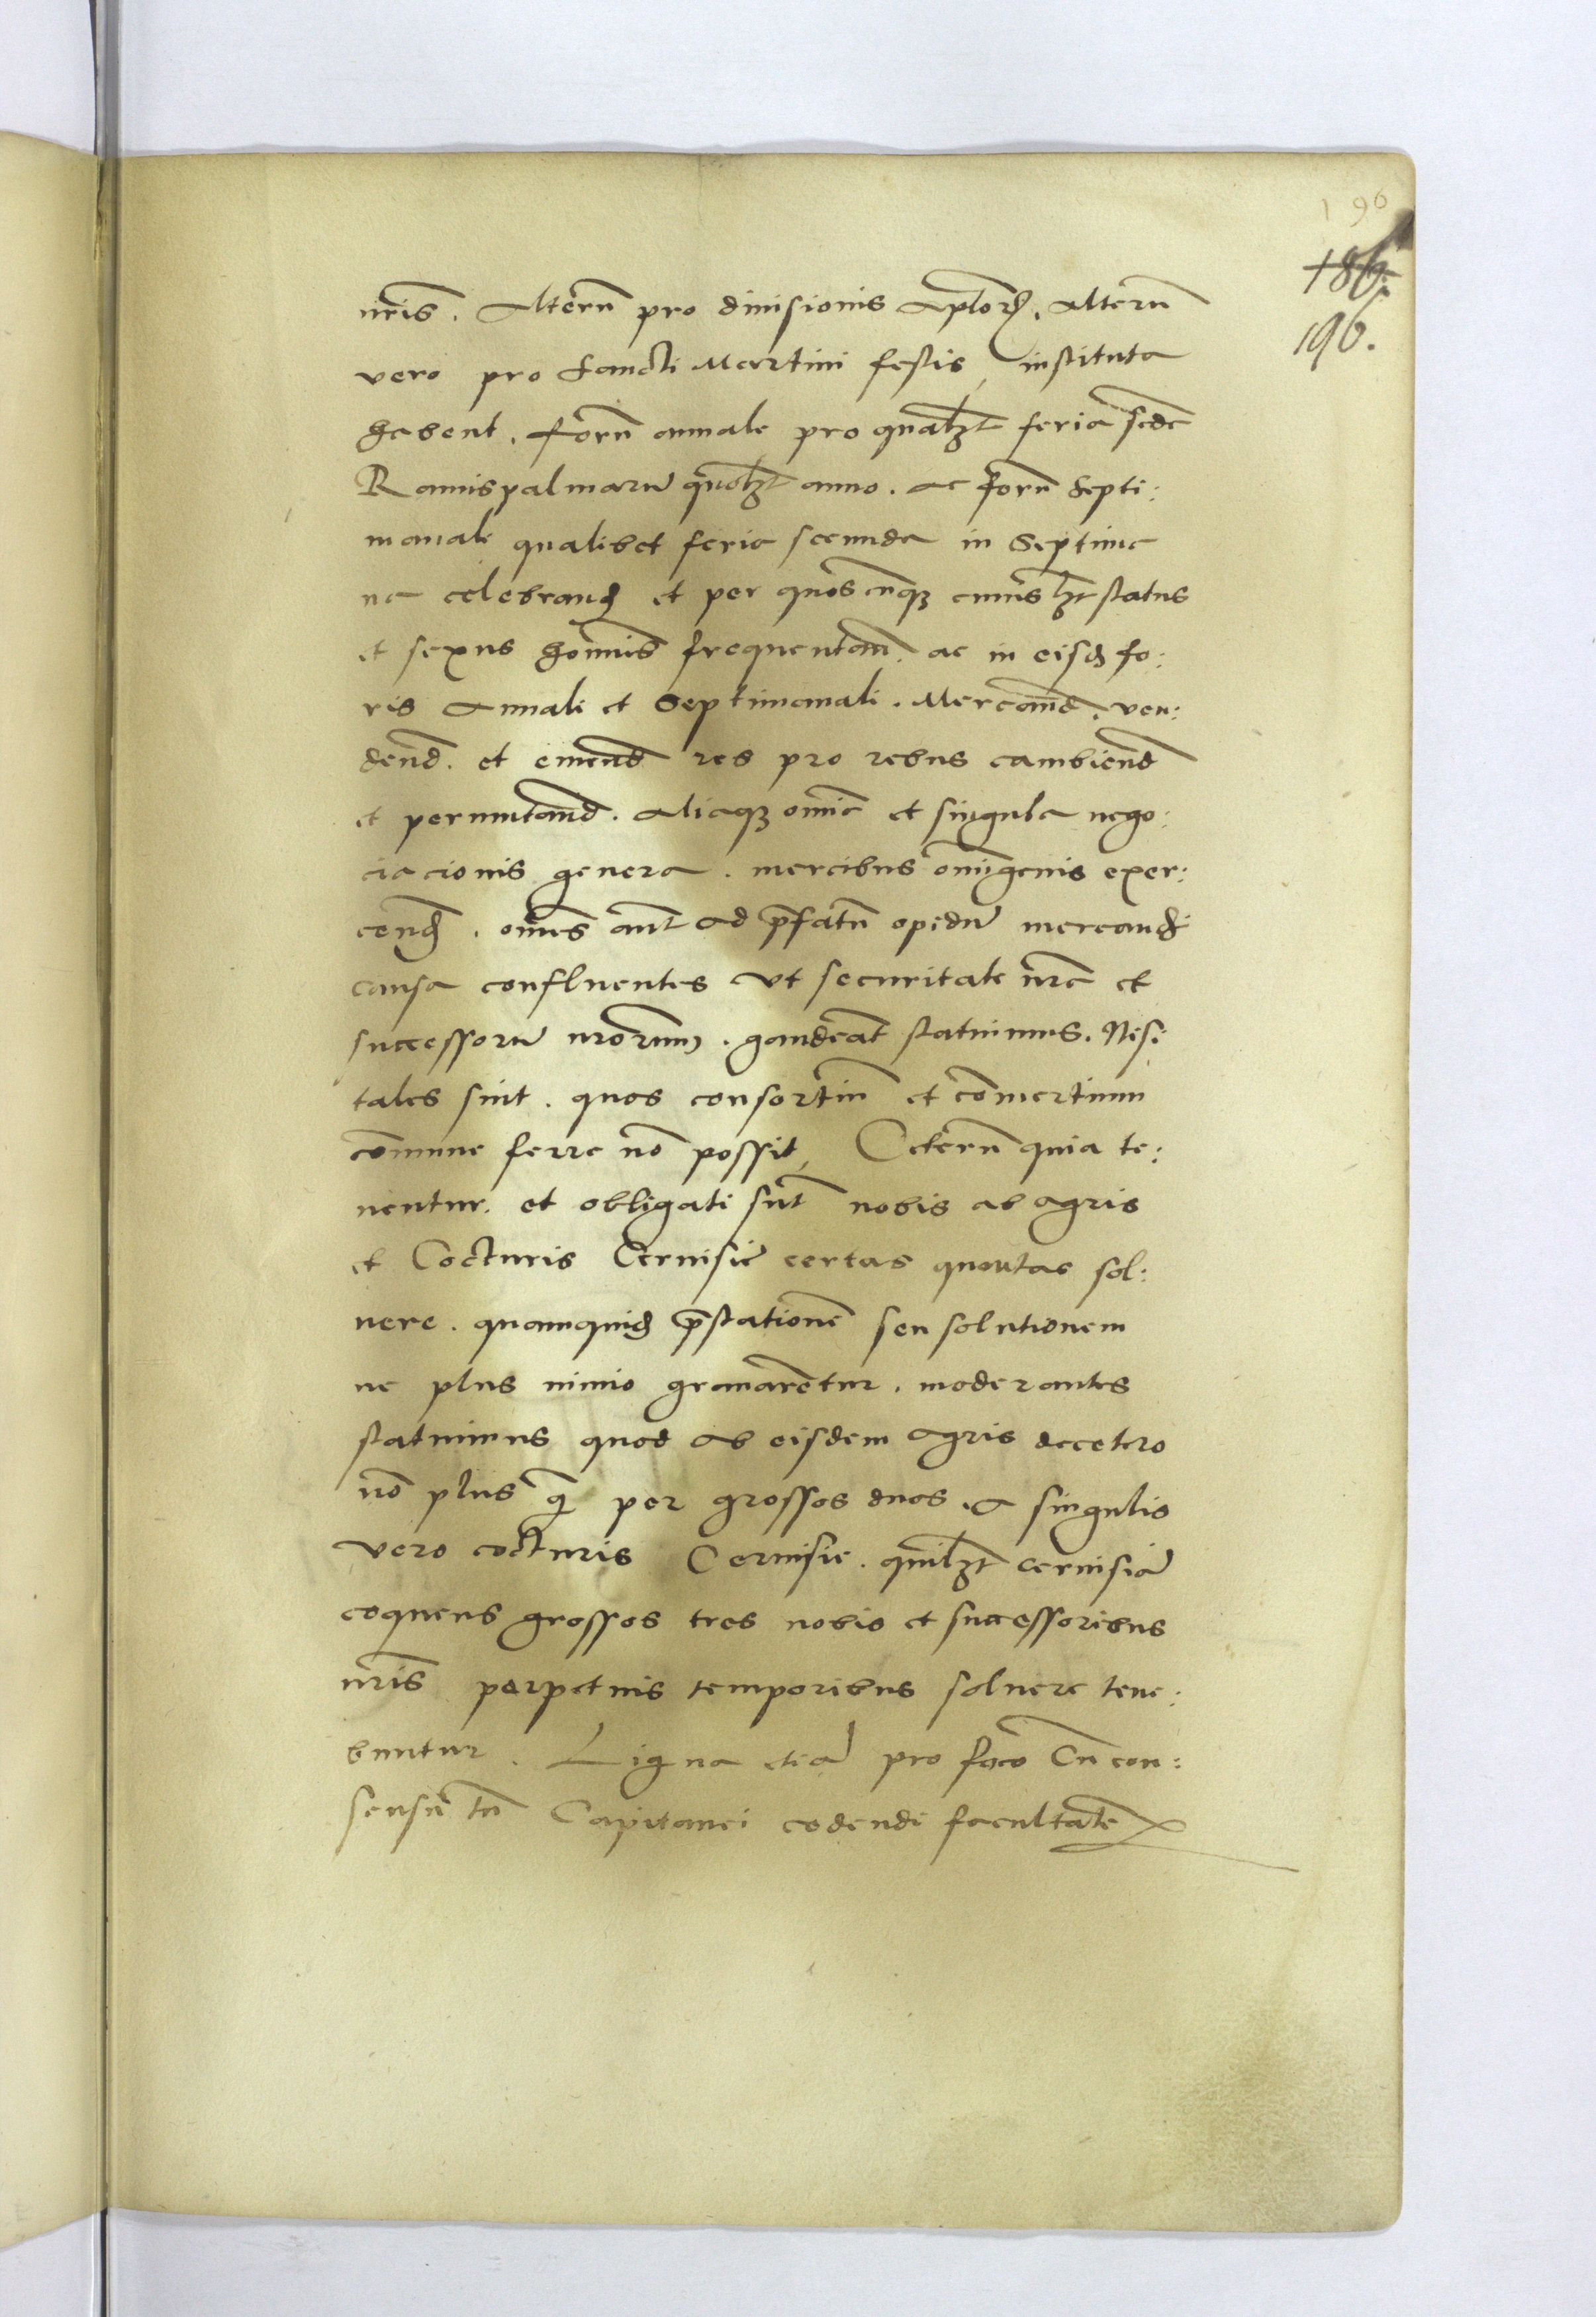 190
186.
196.
nris̄. Alterū pro diuisionis Aplorȝ. Alterū
vero pro Sancti Martini festis, instituta
habent. Forū annale pro qualꝫt feria scdā
Ramispalmarū quolꝫt anno. ac forū septi:
manali qualibet feria secunda in Septima
na celebrand et per quoscūqꝫ cuiuslꝫt status
et sexus homīes frequentan̄. ac in eisd fo:
ris Annali et Septimanali. Mercand̄. ven:
dend̄. et emend̄ res pro rebus cambiend̄
et permutand̄. Aliaqꝫ omīa et singula nego:
ciacionis genera. mercibus om̄igenis exer:
cend. om̄es aūt ad p̄fatū opidū mercandi
causa confluentes vt securitate n̄ra et
successorū n̄rorum. gaudeāt statuimus. Nisi
tales sint. quos consortiū et cōmertium
cōmune ferre nō possit, Ceterū quia te:
nentur. et obligati sūt nobis ab agris
et Cocturis Ceruisie certas quottas sol:
uere. quamquid p̄stationē seu solutionem
ne plus nimio grauarētur. moderantes
statuimus quod ab eisdem agris decetero
nō plus q̄ per grossos duos. a singulis
vero cocturis Ceruisie. quilꝫt ceruisiā
coquens grossos tres nobis et successoribus
n̄ris perpetuis temporibus soluere tene:
buntur. Ligna etiā pro foco Cū con:
sensu tn̄ Capitanei cedendi facultatē